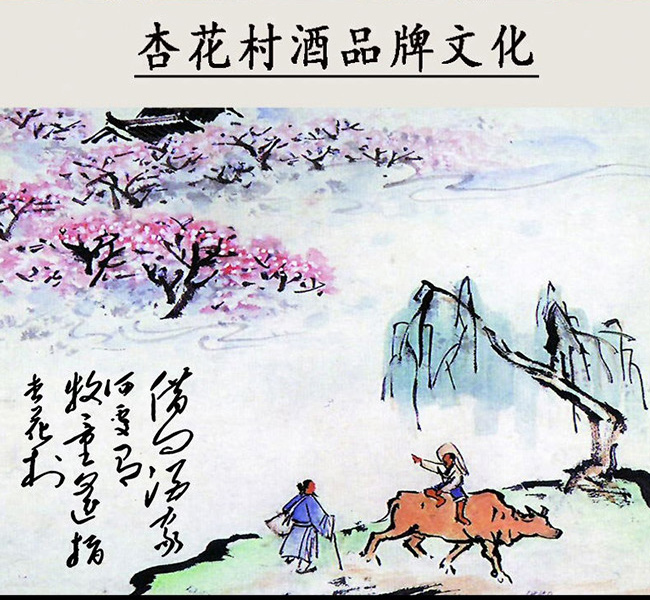 杏花村酒品牌文化
借问酒家
何处有
牧童遥指
杏花村